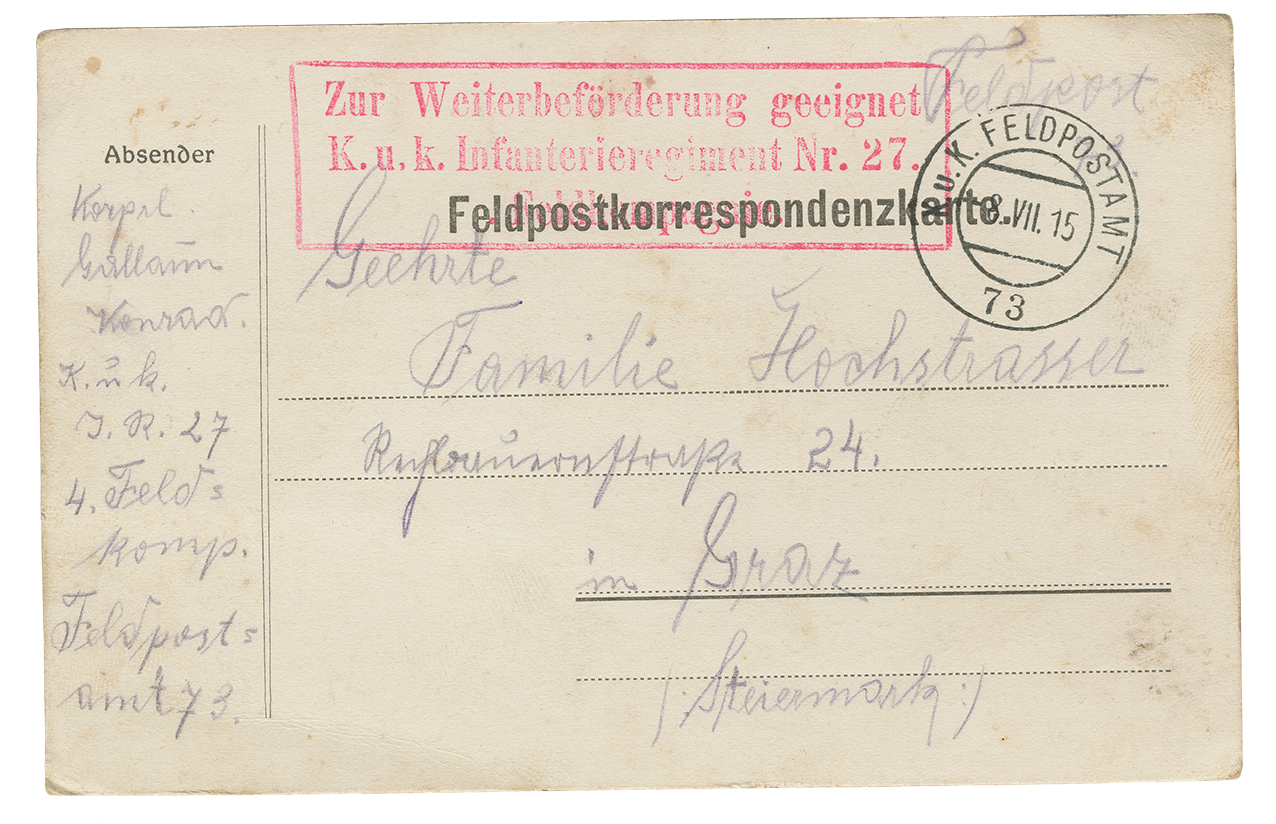 Feldpost
Zur Weiterbeförderung geeignet
K. u. k. Infanterieregiment Nr. 27.
Feldkompagnie.
Feldpostkorrespondenzkarte.
K. u. K. FELDPOSTAMT
8. VII. 15
73
Absender
Korprl.
Gallaun
Konrad.
K. u k.
I. R. 27
4. Feld=
komp.
Feldpost=
amt 73.
Geehrte
Familie Hochstrasser
Rechbauernstraße 24.
in Graz
(: Steiermark :)